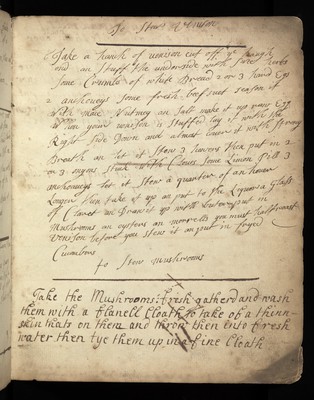 To Stew Venison
Take a hanch of venison cut off ye
and an stuff the under side with sore herbs
some Crumbs of white Bread 2 or 3 hard Egs
2 anchoveys some fresh beef suet season it
with mace Nutmeg an salt make it up rany Egg
When your venison is stuffed lay it with the
Right side Down and almost Cover it with strong
Breath an let it stew 3 howers then put in 2
or 3 onyons stuck with Cloves some Lemon Pill 3
anchoveys let it stew a quarter of an hower
Longer then take it up an put to the Liquor a Glass
of Claret an Draw it up with butter put in
Mushrooms an oysters an morrells you must half roast
venison before you stew it an put in fryed
Crumbons
to Stew mushrooms
Take the Mushrooms: fresh gatherd and wash
them with a flanell Cloath to take of a thinn-
skin thats on them and throw then into fresh
water then tye them up in a fine Cloath